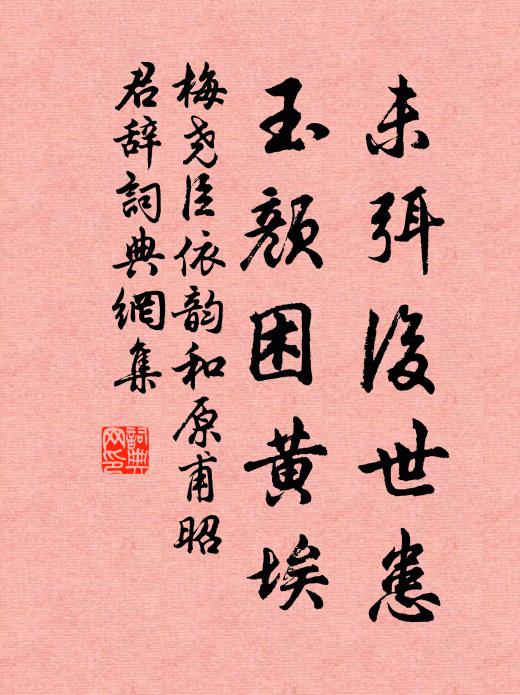 未弭後世患
玉顏困黄埃
梅尧臣依韵和原甫昭
君辞詞典網集
詞典网印